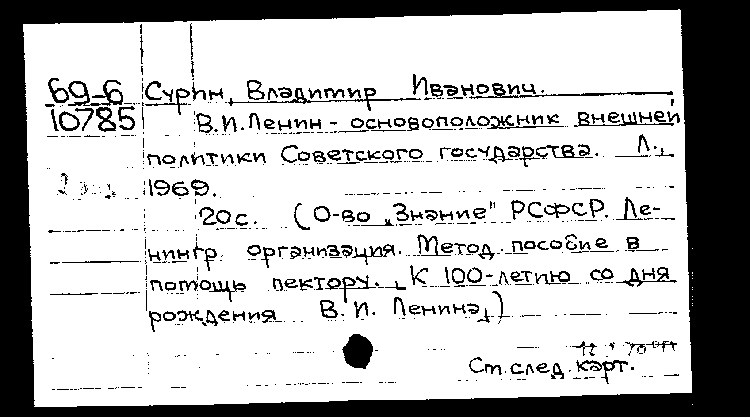 69-6 Сурин, Владимир Иванович.
10785 В.И.Ленин - основоположник внешней
политики Советского государства. Л.,
2 экз 1969.
20с. (О-во "Знание" РСФСР. Ле-
нингр. организация. Метод. пособие в
помощь лектору. [К 100-летию со дня
рождения В. И. Ленина])
См. след. карт.